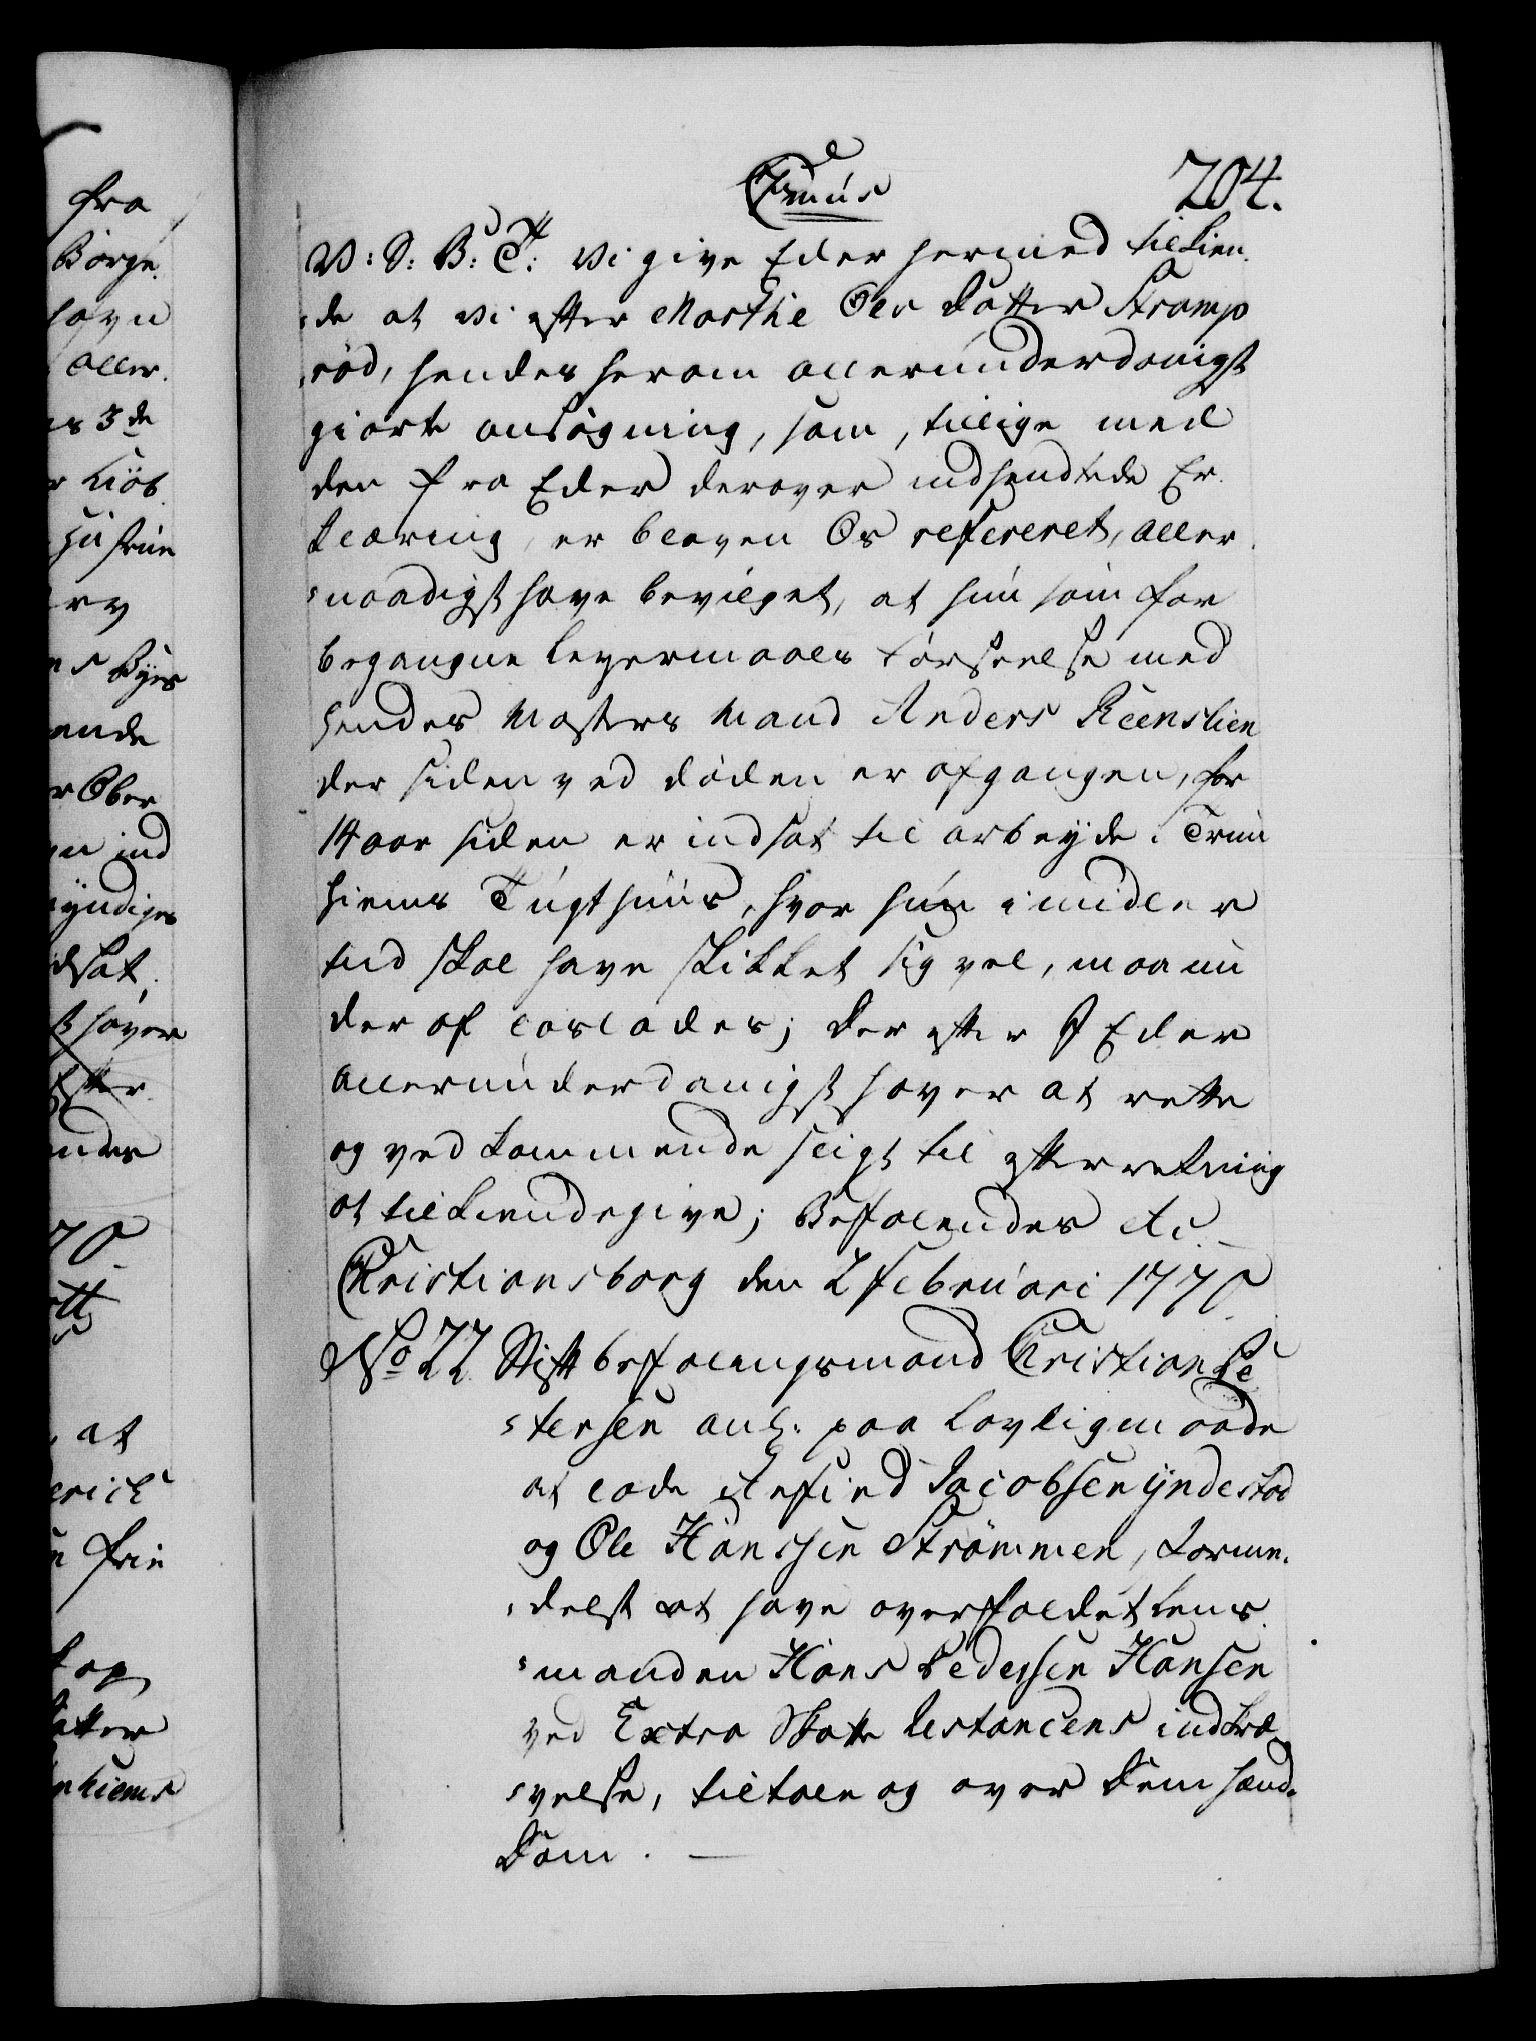 204.
Cmus
V: S: B: T: Vi give Eder hermed tilkien¬
¬de at Vi efter Marthe Ols Datter Stramp
¬rød, hendes herom allerunderdanigst
giorte ansøgning, som, tillige med
den fra Eder derover indsendtede Er¬
klæring, er bleven Os refereret, aller¬
¬naadigst have bevilget, at hun som for
begangne Leyermaals Forseelse med
hendes Mosters Mand Anders Reenslien
der siden ved døden er afgangen, for
14 aar siden er indsat til arbeyde i Trun
hiems Tugthuus, hvor hun imidler
tiid skal have skikket sig vel, maa nu
der af løslades; Der efter I Eder
allerunderdanigst haver at rette
og vedkommende sligt til efterretning
at tilkiendegive; Befalendes etc.
Christiansborg den 2 Februari 1770
No 22 Stiftbefalingsmand Christian Pe
¬tersen anb. paa Lovlig maade
at lade Arfind Jacobsen Yndestad
og Ole Hanssen Strømmen, formi¬
¬delst at have overfaldet Lens¬
¬manden Hans Pedersen Hansen
ved Extra Skatte Restancens indkræ¬
¬velse, tiltale og over Dem hænd¬
Dom. —
fra
Børge
havn
aller¬
3de
Kiøb
Hustrue
Byes
ende
Ober
ind
myndiges
dsat,
haver
efter
endes
70
at
erich
frie
Datter
hiems